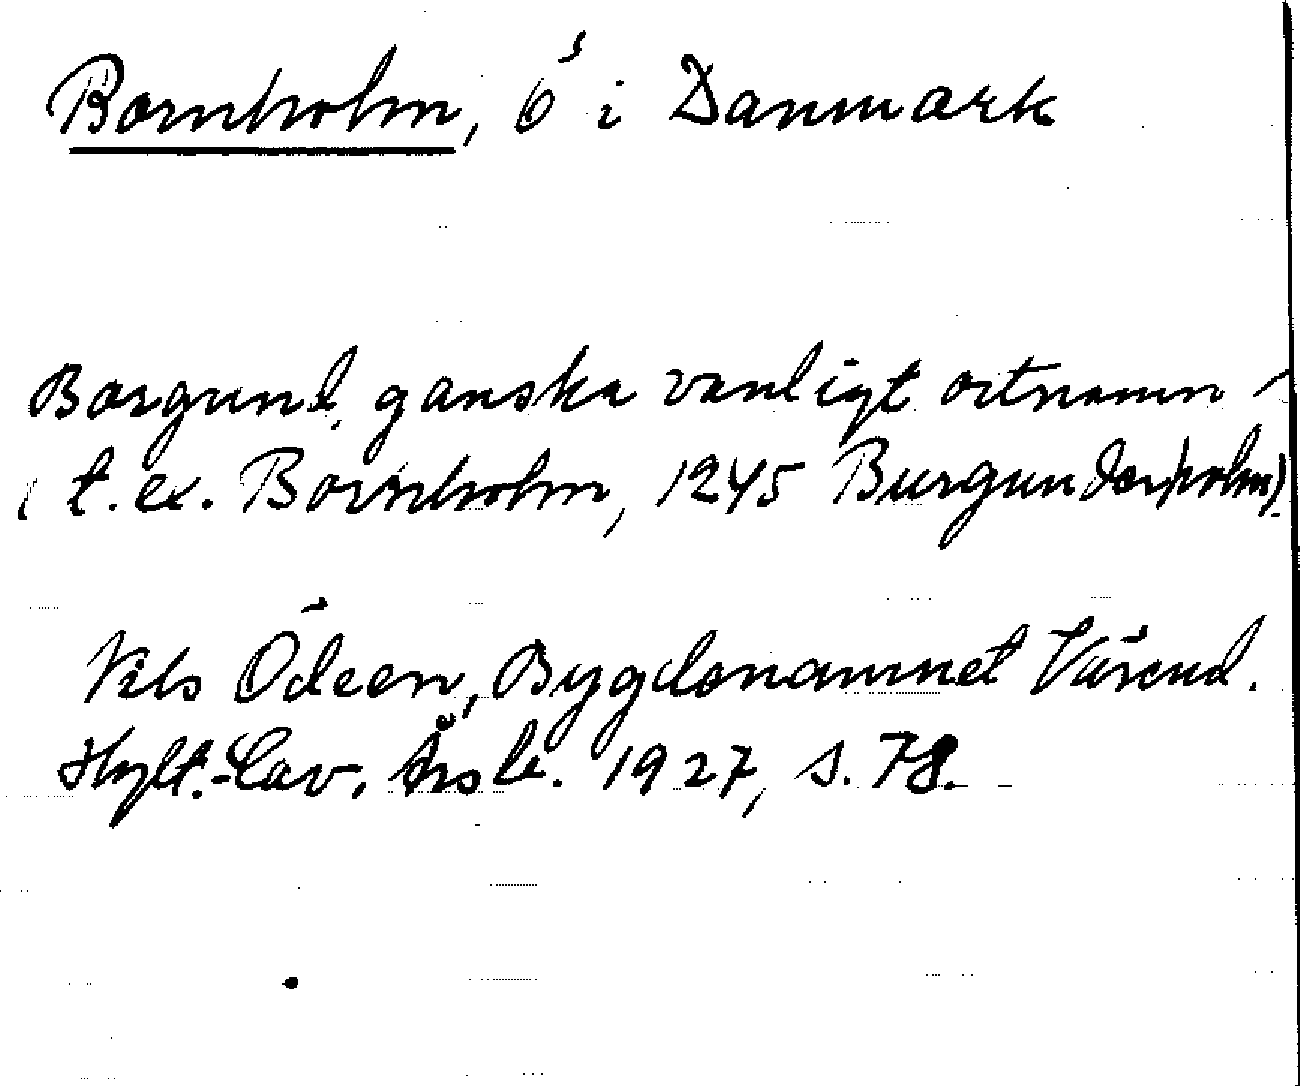 Bornholm, ö i Danmark
Borgund, ganska vanligt ortnamn -
(t.ex. Bornholm, 1245 Burgunderholm).
Nils Ödeen, Bygdenamnet Värend.
Hylt.-Cav. Årsb. 1927, s. 78.